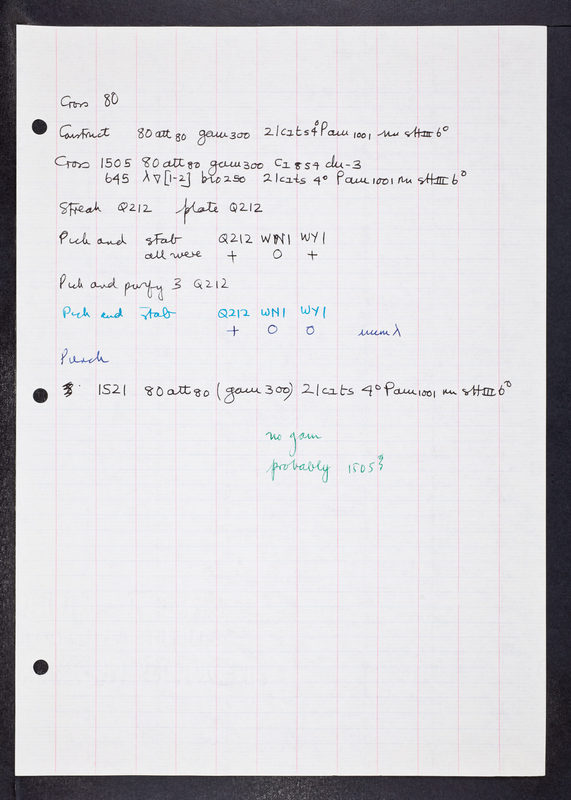 Cross 80
Construct 80 att 80 gam 300 21 cIts 4° Pam 1001 nin sHIII 6°
Cross 1505 80 att 80 gam 300 CI 854 du-3
645 λ ∇ [1-2] bio 250 21 cIts 4° Pam 1001 nin sHIII 6°
Streak Q212 plate Q212
Pick and stab Q212 WN1 WY1
all were + O +
Pick and purify 3 Q212
Pick and stab Q212 WN1 WY1
+ O O imm λ
Punch
1521 80 att 80 (gam 300) 21 cIts 4° Pam 1001 nin sHIII 6°
no gam
probably 1505